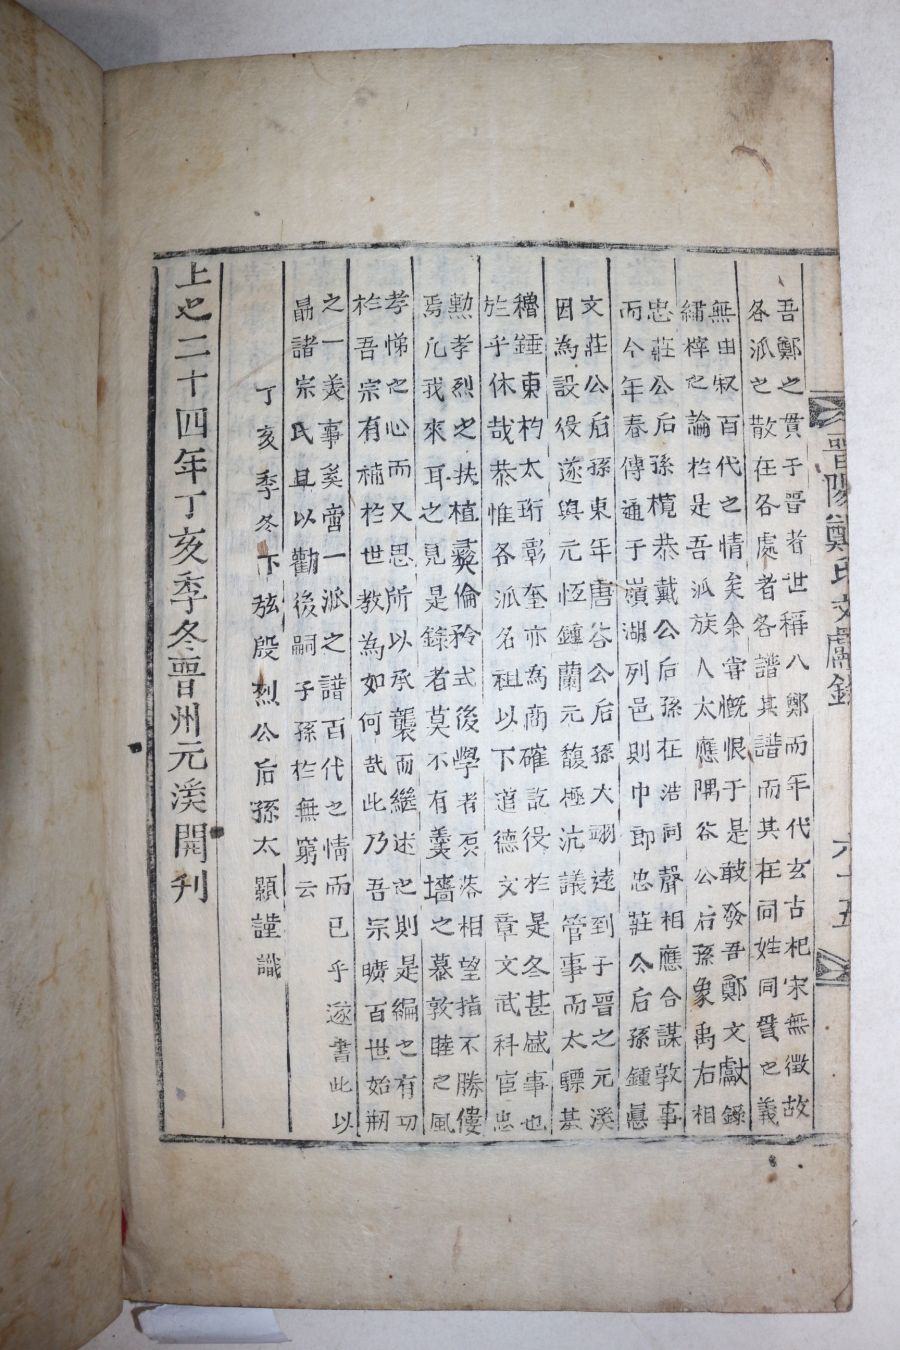 晋陽鄭氏文獻錄
六十五
吾鄭之貫于晋者世稱八鄭而年代玄古杞宋無徵故
各派之散在各處者各譜其譜而其在同姓同貫之義
無由叙百代之情矣余甞慨恨于是敢發吾鄭文獻錄
繡梓之論於是吾派族人太應隅谷公后孫象禹右相
忠莊公后孫㰖恭戴公后孫在浩同聲相應合謀敦事
而今年春傳通于嶺湖列邑則巾即忠莊公后孫鍾悳
文莊公后孫東年唐谷公后孫大翊遠到于晋之元溪
因為設役遂與元恆鍾蘭元馥極沆議管事而太驃基
櫓錘東杓太珩彰奎亦為商確訖役於是冬甚盛事也
於乎休哉恭惟各派名祖以下道德文章文武科宦忠
勲孝烈之扶植彛倫矜式後學者磊落相望指不勝僂
焉凡我來耳之見是錄者莫不有羹墻之慕敦睦之風
孝悌之心而又思所以承襲而繼述之則是編之有功
於吾宗有補於世教為如何哉此乃吾宗曠百世始刱
之一美事奚啻一派之譜百代之情而已乎遂書此以
勗諸宗氏且以勸後嗣子孫於無窮云
丁亥季冬下弦殷烈公后孫太顯謹識
上之二十四年丁亥季冬晋州元溪開刋